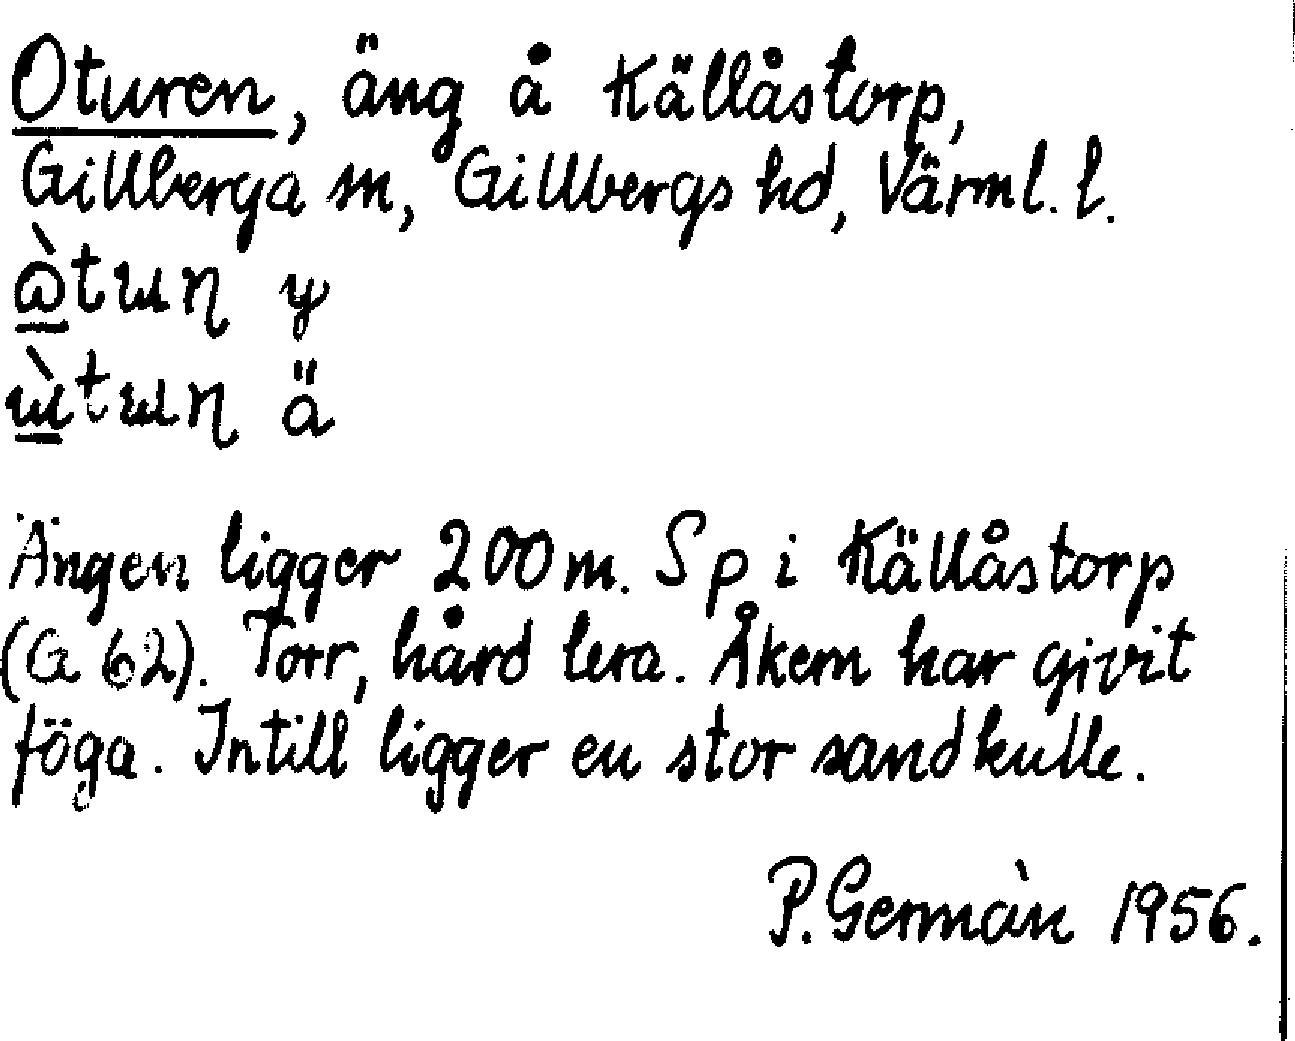 Oturen, äng å Källåstorp,
Gillberga sn, Gillbergs hd, Värml. l.
y
ä
Ängen ligger 200 m. S p i Källåstorp
(G 62). Torr, hård lera. Åkern har givit
föga. Intill ligger en stor sandkulle.
P. Germàn 1956.